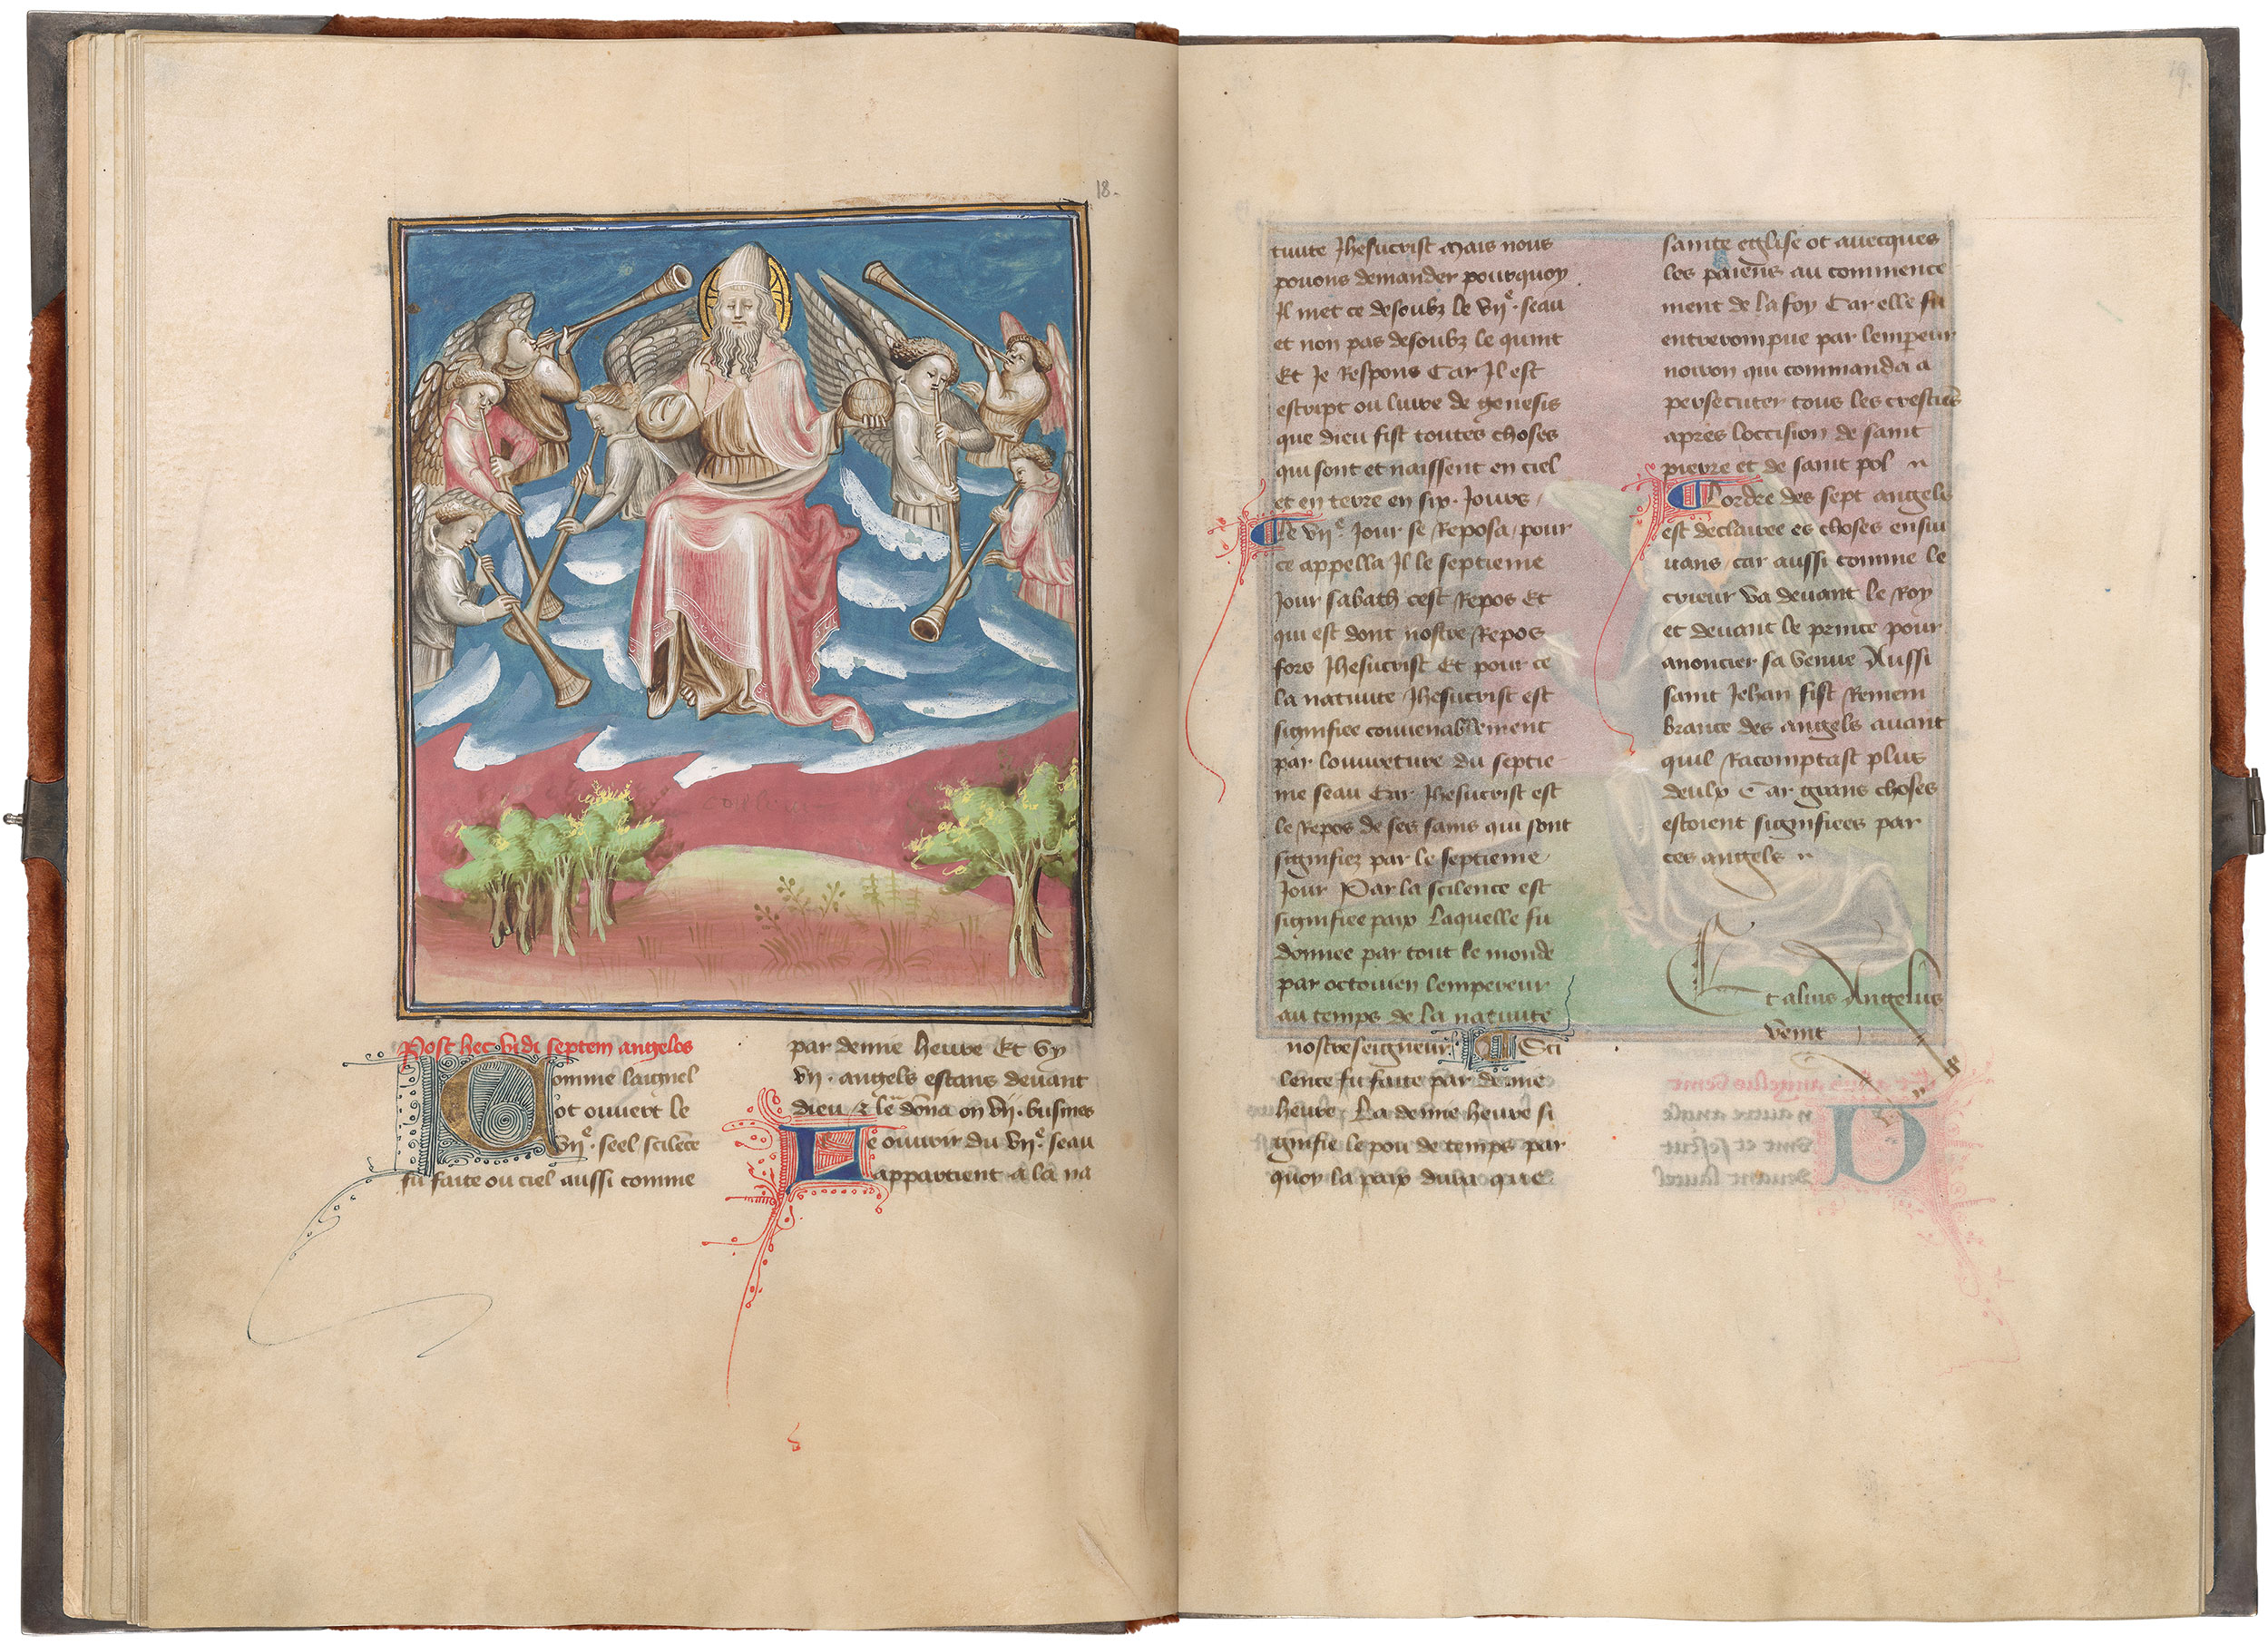 18.
Post hec vidi septem angelos
Comme laignel
ot ouuert le
vije. seel scilece
fu faite ou ciel aussi comme
par demie heure Et vy
vij. angels estans deuant
dieu & le dona on vij. busines
Le ouurir du vije. seau
appartient a la na
19.
tiuite Jhesucrist Mais nous
pouons demander pourquoy
Il met ce desoubz le vije. seau
et non pas desoubz le quint
Et Je Respons Car Il est
escript ou liure de genesis
que dieu fist toutes choses
qui sont et naissent en ciel
et en terre en six. Jours
le vije. Jour se Reposa pour
ce appella Il le septieme
Jour sabath cest Repos Et
qui est dont nostre Repos
fors Jhesucrist Et pour ce
la natiuite Jhesucrist est
signifiee conuenablement
par louuerture du septie
me seau Car Jhesucrist est
le Repos de ses sains qui sont
signifiez par le septieme
Jour Par la scilence est
signifiee paix Laquelle fu
donnee par tout le monde
par octouien lempereur
au temps de la natiuite
nostreseigneur. Sci
lence fu faite par demie
heure. La demie heure si
gnifie le pou de temps par
quoy la paix dura que
sainte eglise ot auecques
les paiens au commence
ment de la foy Car elle fu
entrerompue par lempereur
noiron qui commanda a
persecuter tous les crestiens
apres loccision de saint
pierre et de saint pol
Lordre des sept angels
est declairee es choses ensui
uans car aussi comme le
crieur va deuant le Roy
et deuant le prince pour
anoncier sa venue Aussi
saint Jehan fist Remem
brance des angels auant
quil Racomptast plus
deulx Car grans choses
estoient signifiees par
ces angels
Et alius Angelus
venit